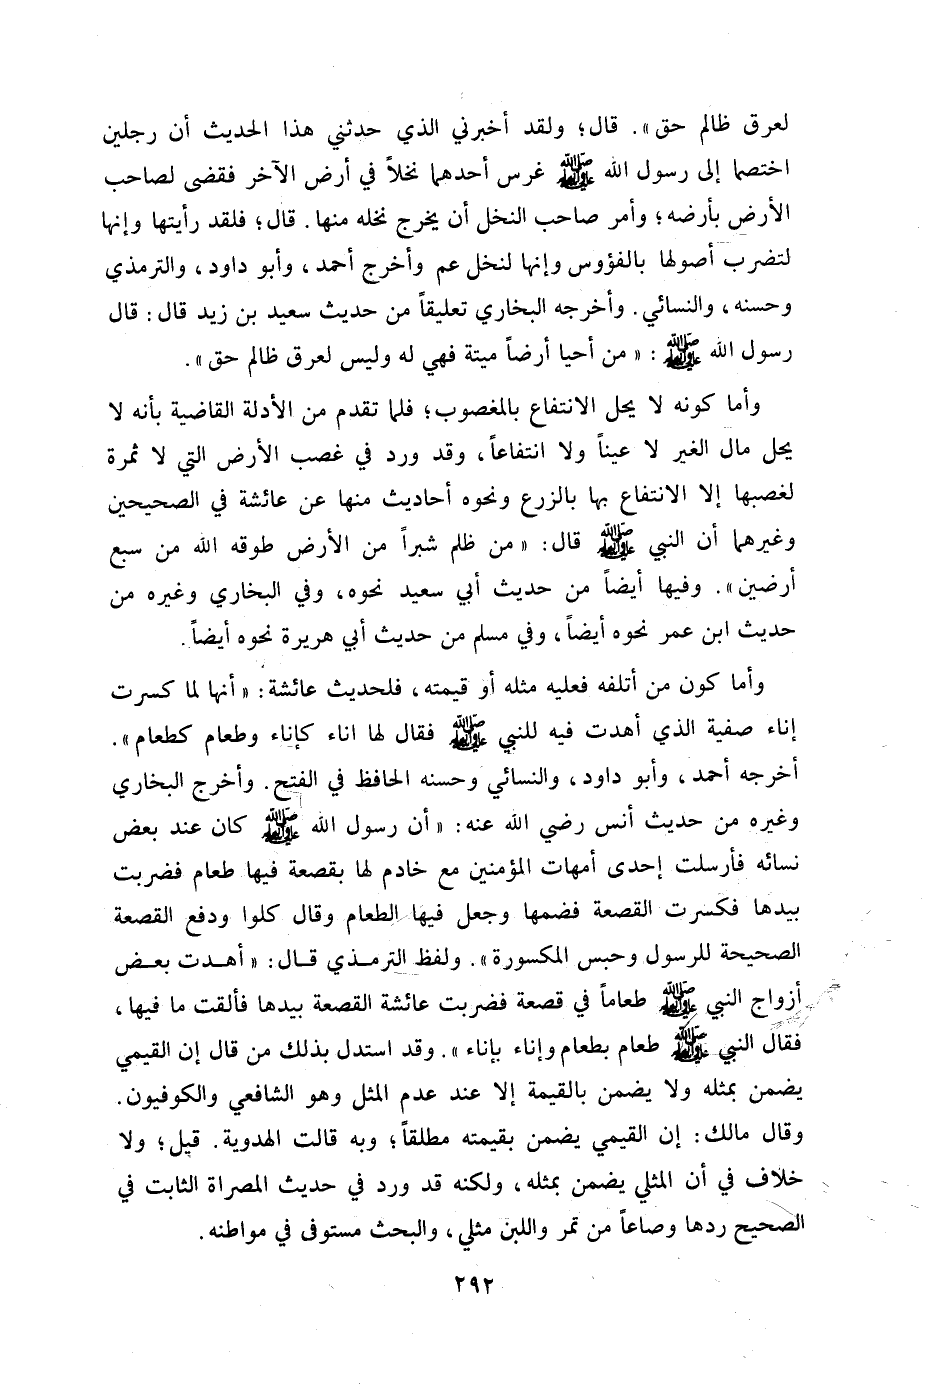 لعرق ظالم حق». قال؛ ولقد أخبرني الذي حدثني هذا الحديث أن رجلين
اختصما إلى رسول الله ﷺ غرس أحدهما نخلاً في أرض الآخر فقضى لصاحب
الأرض بأرضه؛ وأمر صاحب النخل أن يخرج نخله منها. قال؛ فلقد رأيتها وإنها
لتضرب أصولها بالفؤوس وإنها لنخل عم وأخرج أحمد، وأبو داود، والترمذي
وحسنه، والنسائي. وأخرجه البخاري تعليقاً من حديث سعيد بن زيد قال: قال
رسول الله ﷺ: «من أحيا أرضاً ميتة فهي له وليس لعرق ظالم حق».
وأما كونه لا يحل الانتفاع بالمغصوب؛ فلما تقدم من الأدلة القاضية بأنه لا
يحل مال الغير لا عيناً ولا انتفاعاً، وقد ورد في غصب الأرض التي لا ثمرة
لغصبها إلا الانتفاع بها بالزرع ونحوه أحاديث منها عن عائشة في الصحيحين
وغيرهما أن النبي ﷺ قال: «من ظلم شبراً من الأرض طوقه الله من سبع
أرضين». وفيها أيضاً من حديث أبي سعيد نحوه، وفي البخاري وغيره من
حديث ابن عمر نحوه أيضاً، وفي مسلم من حديث أبي هريرة نحوه أيضاً.
وأما كون من أتلفه فعليه مثله أو قيمته، فلحديث عائشة: «أنها لما كسرت
إناء صفية الذي أهدت فيه للنبي ﷺ فقال لها اناء كإناء وطعام كطعام».
أخرجه أحمد، وأبو داود، والنسائي وحسنه الحافظ في الفتح. وأخرج البخاري
وغيره من حديث أنس رضي الله عنه: «أن رسول الله ﷺ كان عند بعض
نسائه فأرسلت إحدى أمهات المؤمنين مع خادم لها بقصعة فيها طعام فضربت
بيدها فكسرت القصعة فضمها وجعل فيها الطعام وقال كلوا ودفع القصعة
الصحيحة للرسول وحبس المكسورة». ولفظ الترمذي قال: «أهدت بعض
أزواج النبي ﷺ طعاماً في قصعة فضربت عائشة القصعة بيدها فألقت ما فيها،
فقال النبي ﷺ طعام بطعام وإناء بإناء». وقد استدل بذلك من قال إن القيمي
يضمن بمثله ولا يضمن بالقيمة إلا عند عدم المثل وهو الشافعي والكوفيون.
وقال مالك: إن القيمي يضمن بقيمته مطلقاً؛ وبه قالت الهدوية. قيل؛ ولا
خلاف في أن المثلي يضمن بمثله، ولكنه قد ورد في حديث المصراة الثابت في
الصحيح ردها وصاعاً من تمر واللبن مثلي، والبحث مستوفى في مواطنه.
٢٩٢